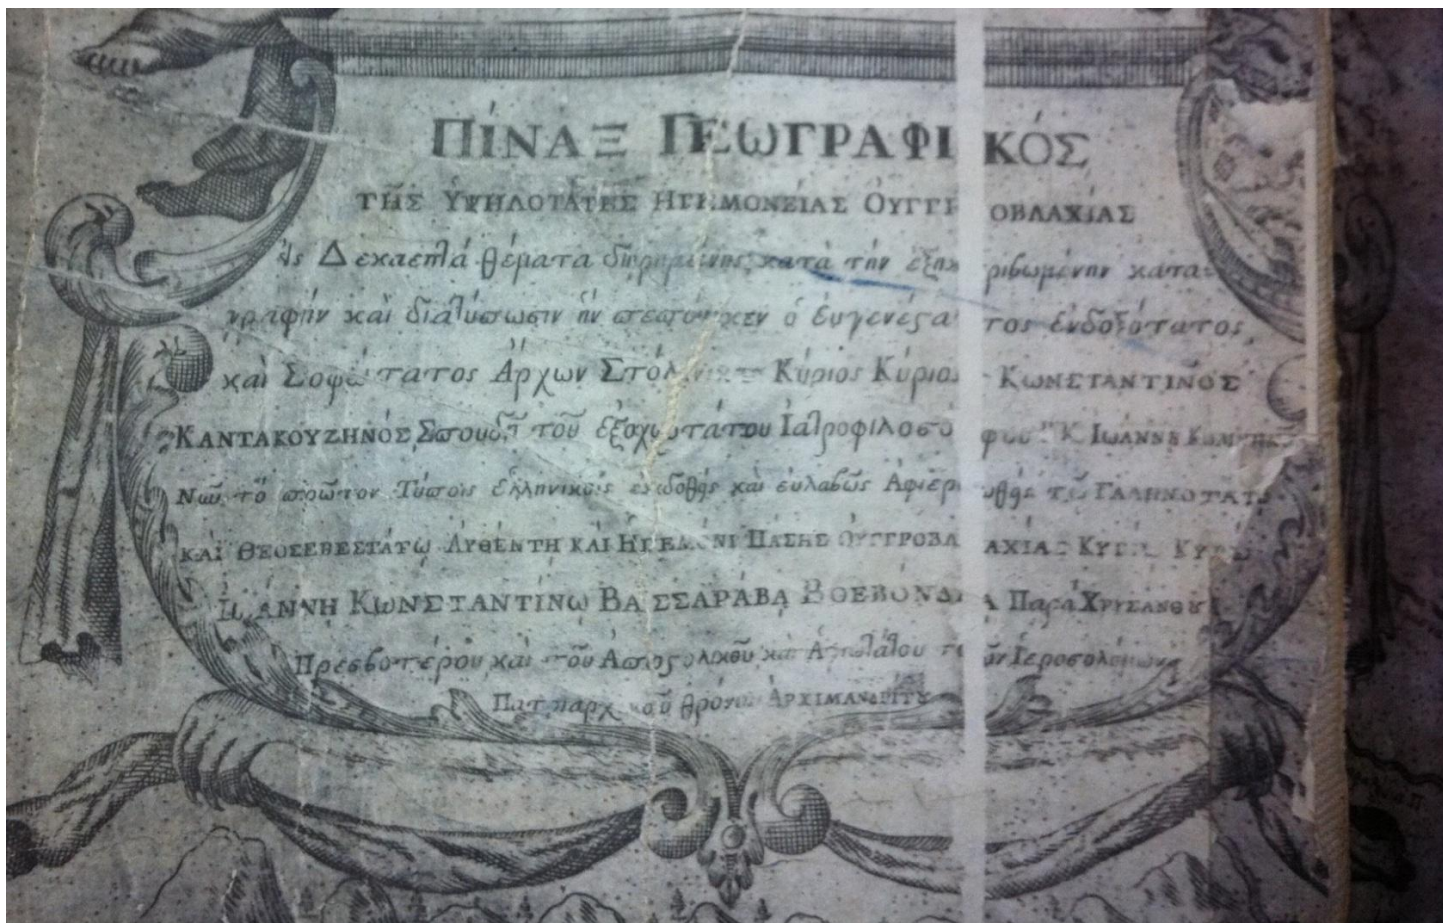 ΠΊΝΑΞ ΓΕΩΓΡΑΦΙΚΌΣ
ΤΗ͂Σ ὙΨΗΛΟΤΆΤΗΣ ἩΓΕΜΟΝΕΊΑΣ ΟΥΓΓΡΟΒΛΑΧΊΑΣ
εἰς Δεκαεπτά θέματα διῃρημένης κατὰ τὴν ἐξηκριβωμένην κατα-
γραφήν καὶ διατύπωσιν ἥν πεποίηκεν ὁ ἐυγενέςατος ἐνδοξότατος
καὶ Σοφώτατος Ἄρχων Στόλνικος Κύριος Κύριος ΚΩΝΣΤΑΝΤΙΝΟΣ
ΚΑΝΤΑΚΟΥΖΗΝΟΣ Σπουδῇ τοῦ ἐξοχωτάτου Ἰατροφιλοσόφου Κ ΙΩΑΝΝΟΥ
Νῦν τὸ πρῶτον Τύποις Ἑλληνικοῖς ἐκδοθεὶς καὶ εὐλαβῶς Ἀφιερωθεὶς τῷ ΓΑΛΗΝΟΤΑΤῼ
ΚΑΙ ΘΕΟΣΕΒΕΣΤΑΤῼ ΑΥΘΕΝΤΗ ΚΑΙ ΗΓΕΜΟΝΙ ΠΑΣΗΣ ΟΥΓΓΡΟΒΛΑΧΙΑΣ
ΙΩΑΝΝΗ ΚΩΝΣΤΑΝΤΙΝΩ ΒΑΣΣΑΡΑΒᾼ ΒΟΕΒΟΝΔΑ Παρὰ ΧΡΥΣΑΝΘΟΥ
Πρεσβυτέρου καὶ τοῦ Ἀποςολικοῦ καὶ Ἁγιωτάτου τῶν Ἱεροσολύμων
Πατριαρχικοῦ θρόνου ἈΡΧΙΜΑΝΔΡΙΤΟΥ